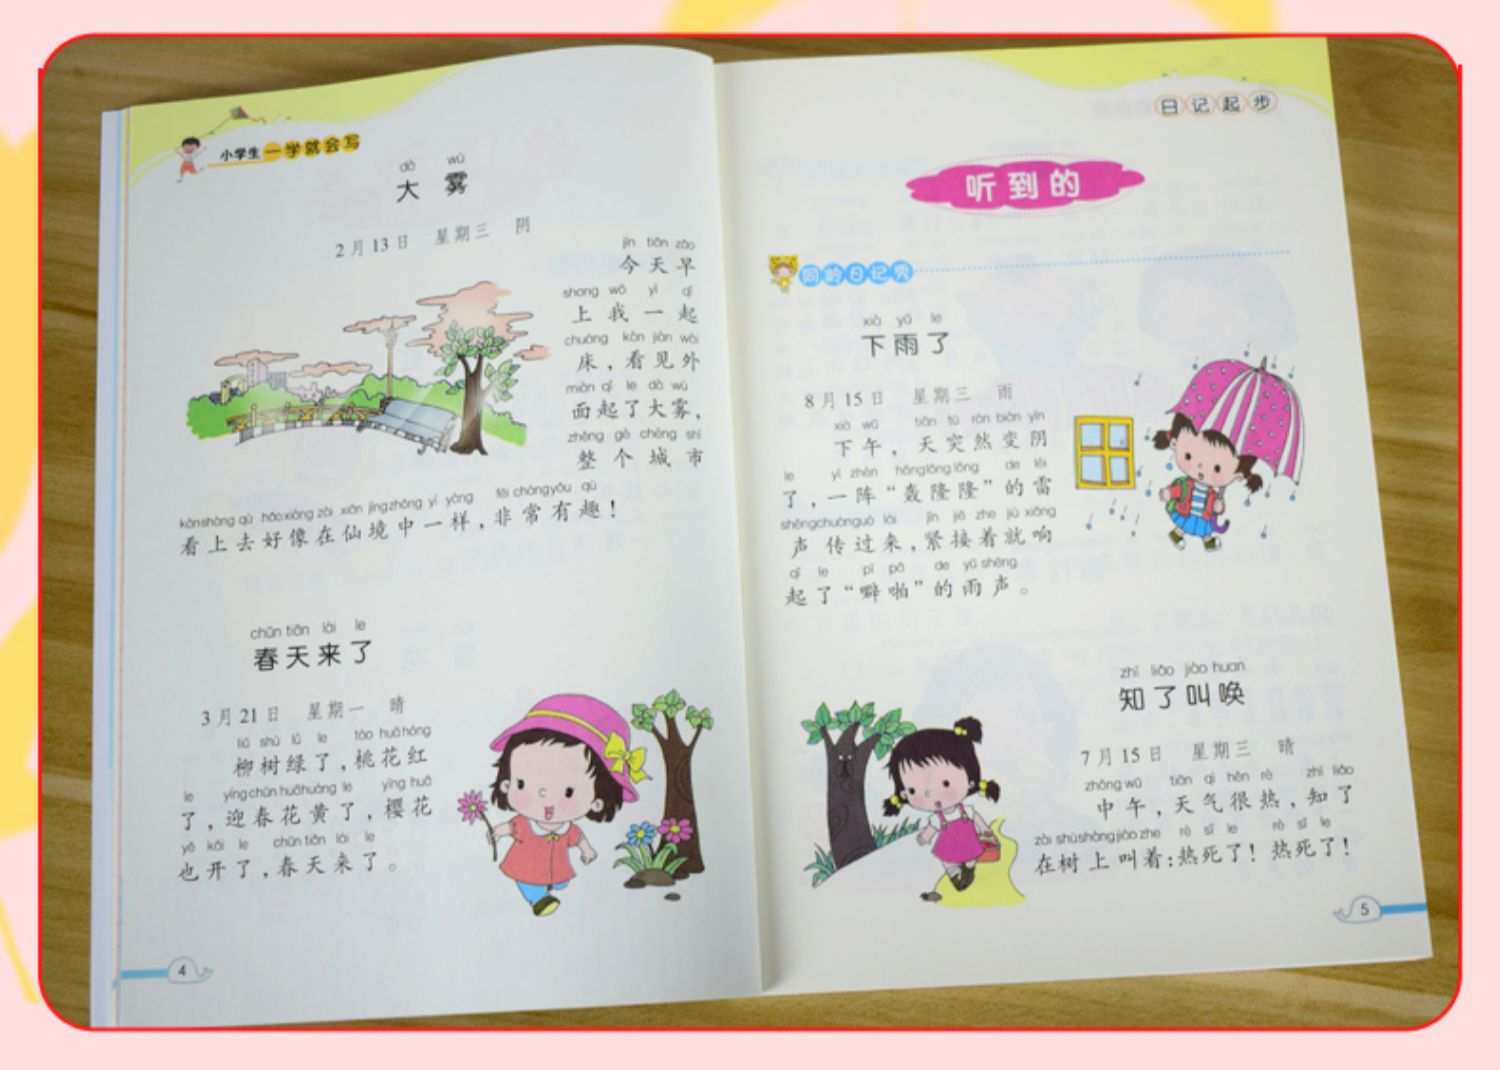 小学生一学就会写
dà wù
大 雾
2月13日 星期三 阴
jīn tiān zǎo
今天早
shang wǒ yì qǐ
上我一起
chuáng kàn jiàn wài
床，看见外
miàn qǐ le dà wù
面起了大雾，
zhěng gè chéng shì
整个城市
kàn shàng qù hǎo xiàng zài xiān jìng zhōng yí yàng fēi cháng yǒu qù
看上去好像在仙境中一样，非常有趣！
chūn tiān lái le
春天来了
3月21日 星期一 晴
liǔ shù lǜ le táo huā hóng
柳树绿了，桃花红
le yíng chūn huā huáng le yīng huā
了，迎春花黄了，樱花
yě kāi le chūn tiān lái le
也开了，春天来了。
4
日记起步
听到的
同龄日记秀
xià yǔ le
下雨了
8月15日 星期三 雨
xià wǔ tiān tū rán biàn yīn
下午，天突然变阴
le yí zhèn hōng lōng lōng de léi
了，一阵“轰隆隆”的雷
shēng chuán guò lái jǐn jiē zhe jiù xiǎng
声传过来，紧接着就响
qǐ le pī pā de yǔ shēng
起了“噼啪”的雨声。
zhī liǎo jiào huan
知了叫唤
7月15日 星期三 晴
zhōng wǔ tiān qì hěn rè zhī liǎo
中午，天气很热，知了
zài shù shàng jiào zhe rè sǐ le rè sǐ le
在树上叫着：热死了！热死了！
5